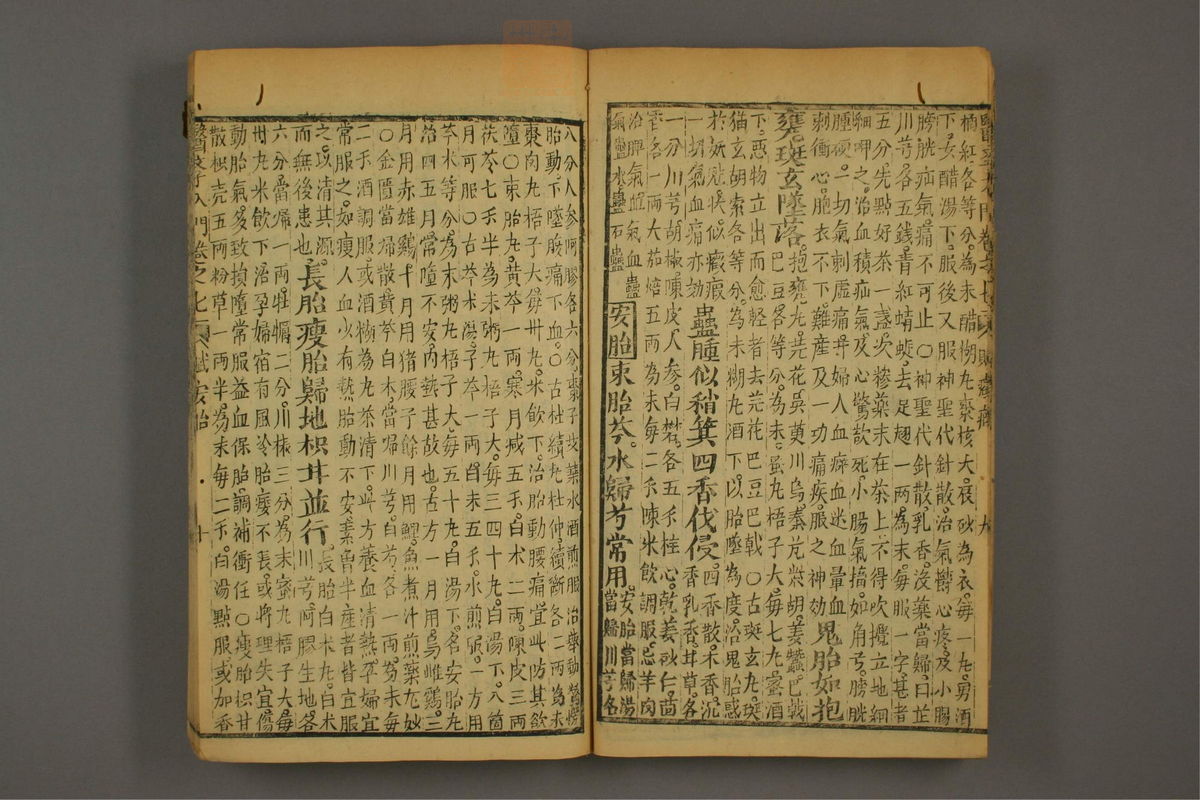 桶紅各等分為末醋糊丸棗核大辰砂為衣每一丸男酒
下女醋湯下服後又服神聖代針散治氣鬱心疼及小腸
膀胱疝氣痛不可止○神聖代針散乳香沒藥當歸白芷
川芎各五錢青紅蜻蜒去足翅一兩為末每服一字甚者
五分先點好茶一盞次糝藥末在茶上不得吹攪立地細
細呷之治血積疝氣攻心驚欲死小腸氣搐如角弓膀胱
腫硬一切氣刺虛痛并婦人血癖血迷血暈血
刺衝心胞衣不下難產及一切痛疾服之神効
鬼胎如抱
甕斑玄墜落
抱甕丸芫花吳萸川烏秦艽柴胡姜蠶巴戟
巴豆各等分為末蜜丸梧子大每七丸蜜酒
下惡物立出而愈輕者去芫花巴豆巴戟○古斑玄丸斑
猫玄胡索各等分為末糊丸酒下以胎墜為度治鬼胎惑
於妖魅狀似癥瘕
一切氣血痛亦効
蠱腫似箕四香伐侵
四香散木香沉
香乳香甘草各
一分川芎胡椒陳皮人參白礬各五千桂心乾姜砂仁茴
香各一兩大茄焙五兩為末每二千陳米飲調服忌羊肉
治脾氣血氣血蠱
氣蠱水蠱石蠱
安胎
束胎芩朮歸芍常用
安胎當歸湯
當歸川芎各
醫學入門卷之七 賦安胎 十
八分人參阿膠各六分棗子艾葉水酒煎服治舉動驚愕
胎動下墜腹痛下血○古杜續丸杜仲續斷各二兩為末
棗肉丸梧子大每卅丸米飲下治胎動腰痛宜此防其欲
墮○束胎丸黃芩一兩寒月減五千白朮二兩陳皮三兩
茯苓七千半為末粥丸梧子大每三四十丸白湯下八箇
月可服○古芩朮湯子芩一兩白朮五千水煎服一方用
芩朮等分為末粥丸梧子大每五十丸白湯下名安胎丸
治四五月常墮不安內熱甚故也古方一月用烏雌雞三
月用赤雄雞十月用猪腰子餘月用鯉魚煮汁煎藥尤妙
○金匱當歸散黃芩白朮當歸川芎白芍各一兩為末每
二千酒調服或酒糊為丸茶清下此方養血清熱孕婦宜
常服之如瘦人血少有熱胎動不安素曾半產者皆宜服
之以清其源
而無後患也
長胎瘦胎歸地枳甘並行
長胎白朮丸白朮
川芎阿膠生地各
六分當歸一兩牡蠣二分川椒三分為末蜜丸梧子大每
卅丸米飲下治孕婦宿有風冷胎痿不長或將理失宜傷
動胎氣多致損墮常服益血保胎調補衝任○瘦胎枳甘
散枳壳五兩粉草一兩半為末每二千白湯點服或加香